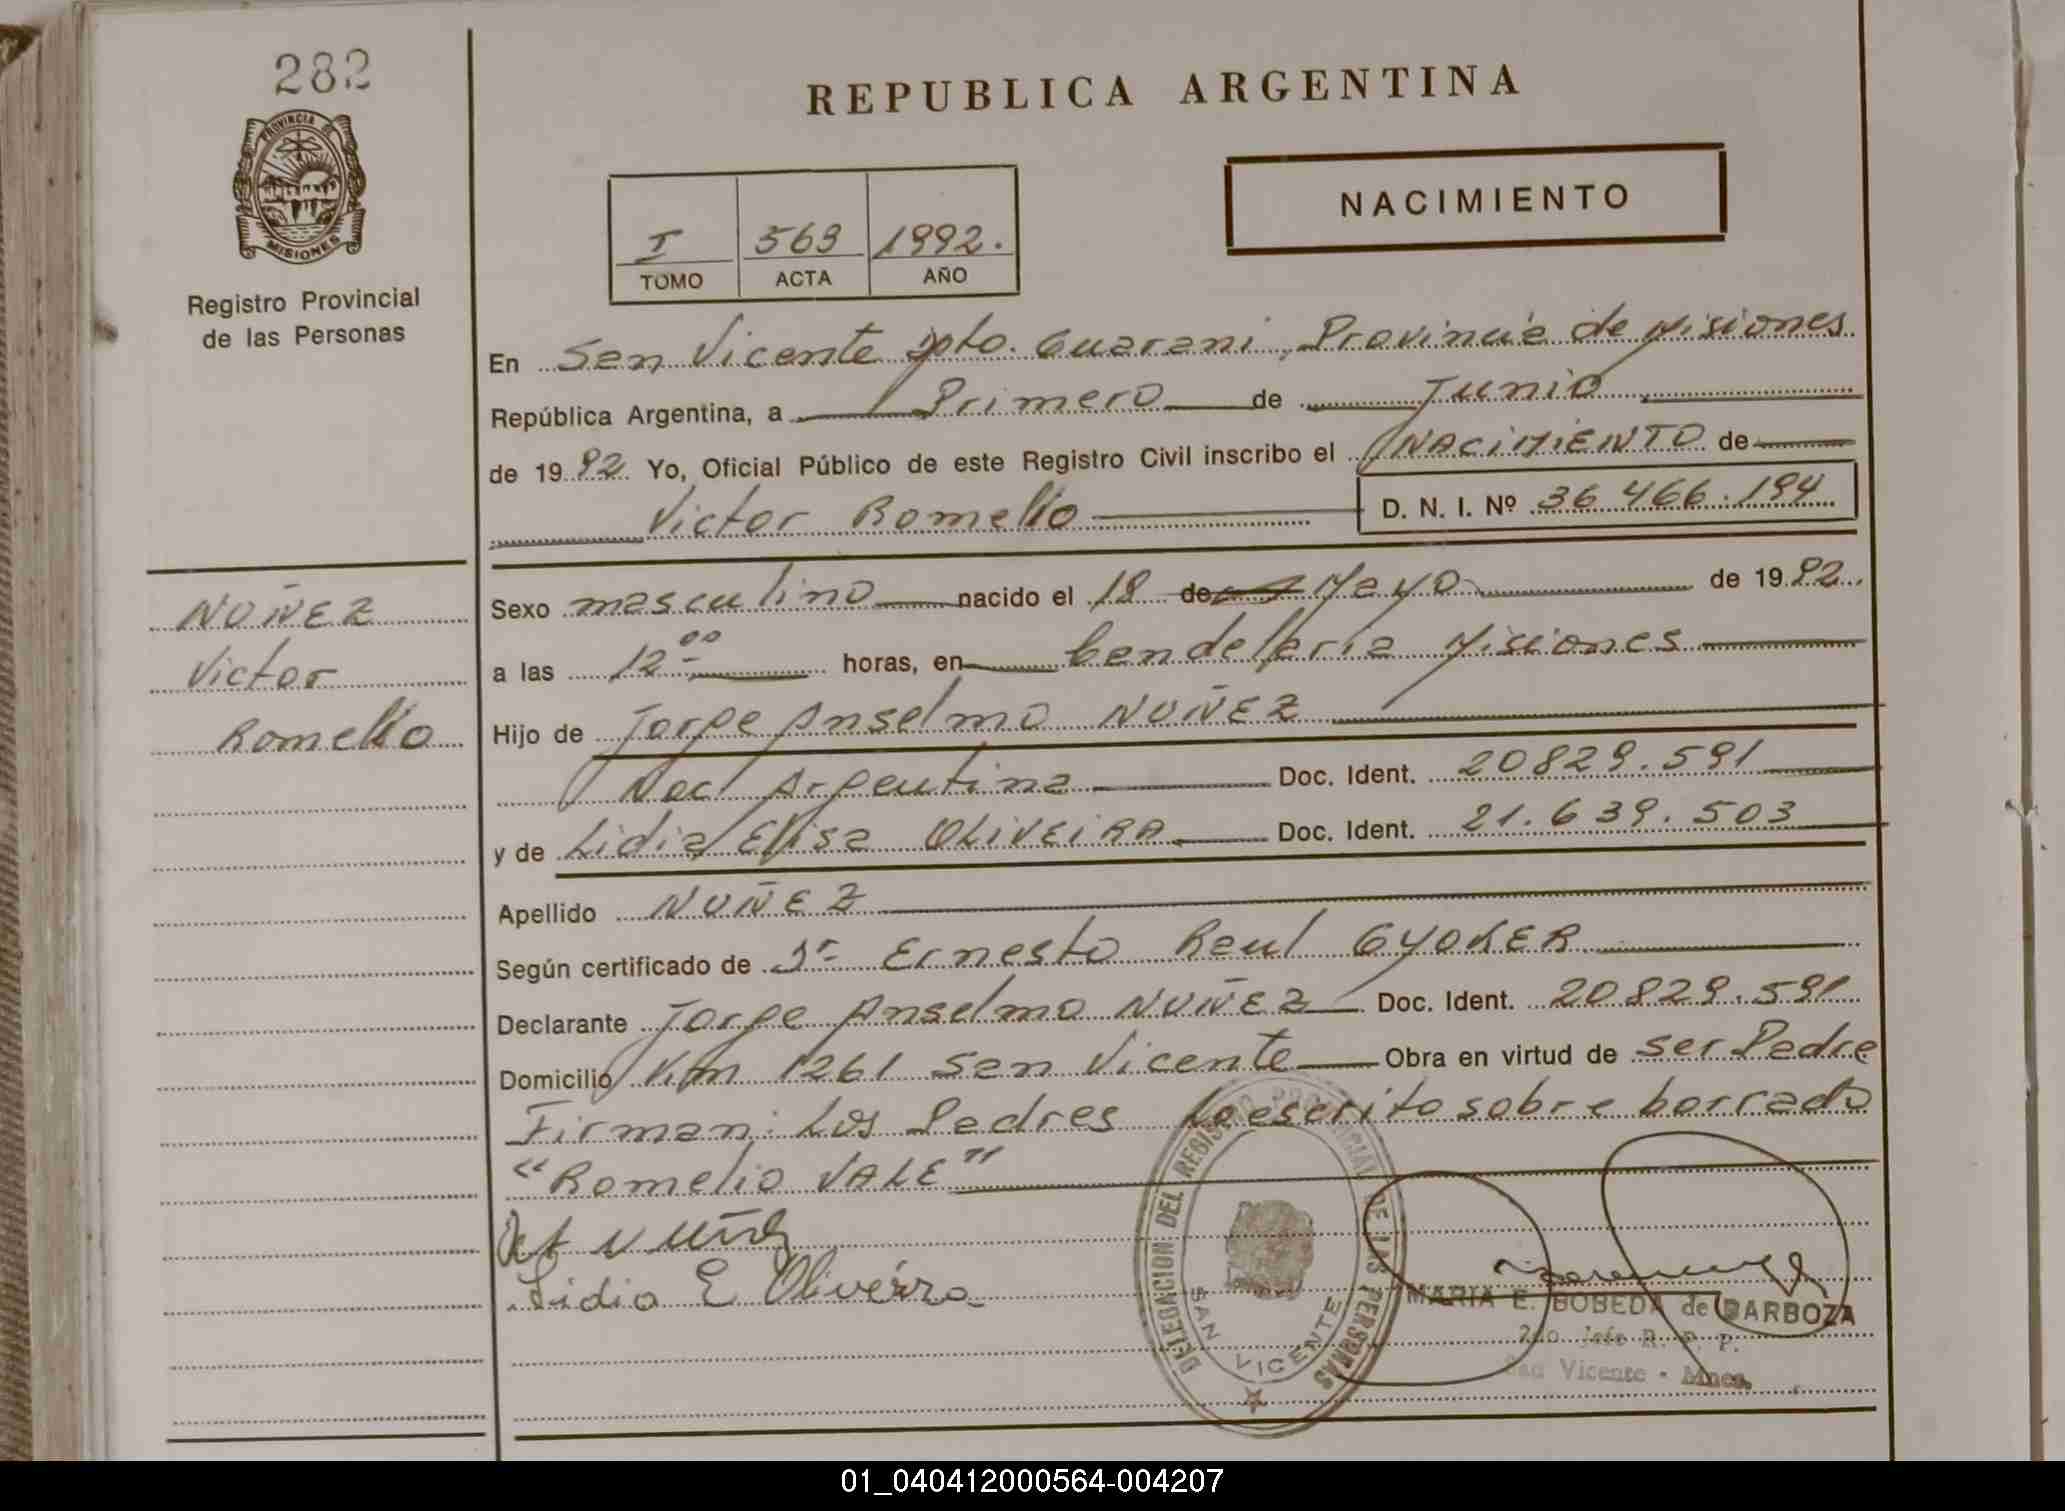 282
PROVINCIA DE
MISIONES
Registro Provincial
de las Personas
REPUBLICA ARGENTINA
NACIMIENTO
I 569 1992.
TOMO ACTA AÑO
En San Vicente Dpto. Guarani, Provincia de Misiones
República Argentina, a Primero de Junio
de 1992. Yo, Oficial Público de este Registro Civil inscribo el NACIMIENTO de
Victor Romelio D. N. I. Nº 36 466.194
NUÑEZ
Victor
Romelio
Sexo masculino nacido el 18 de Mayo de 1992.
a las 12 00 horas, en Candelaria Misiones
Hijo de Jorge Anselmo NUÑEZ
Nac Argentina Doc. Ident. 20829.591
y de Lidia Elisa OLIVEIRA Doc. Ident. 21.639.503
Apellido NUÑEZ
Según certificado de Dr Ernesto Raul GYOKER
Declarante Jorge Anselmo NUÑEZ Doc. Ident. 20829.591
Domicilio Km 1261 San Vicente Obra en virtud de ser Padre
Firman: Los Padres Lo escrito sobre borrado
"Romelio VALE"
Lidia E Oliveira
DELEGACION DEL REGISTRO PROVINCIAL DE LAS PERSONAS
SAN VICENTE
MARIA E. BOBEDA de BARBOZA
2do. Jefe R. P. P.
San Vicente - Mnes.
01_040412000564-004207